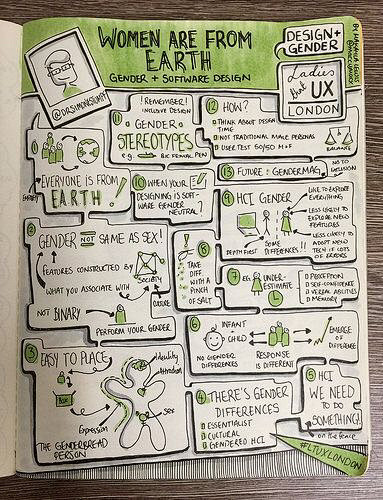 WOMEN ARE FROM
EARTH
GENDER + SOFTWARE DESIGN
DESIGN +
GENDER
@DRSIMONESTUMPF
Ladies
that UX
LONDON
!REMEMBER!
INCLUSIVE DESIGN
11 GENDER
STEREOTYPES
e.g. BIC FOR HER PEN
12 HOW?
THINK ABOUT DESIGN
TIME
NOT TRADITIONAL MALE PERSONAS
USER TEST 50/50 M+F
BALANCE
1
EVERYONE IS FROM
EARTH!
10 WHEN YOUR
DESIGNING IS SOFT-
WARE GENDER
NEUTRAL?
13 FUTURE = GENDERMAG
NO TO
DIVISION
9 HCI GENDER
LIKE TO EXPLORE
EVERYTHING
LESS LIKELY TO
EXPLORE NEW
FEATURES
LESS LIKELY TO
ADOPT NEW
TECH IF LOTS
OF ERRORS
DEPTH FIRST
SOME
DIFFERENCES!!
2
GENDER NOT SAME AS SEX!
FEATURES CONSTRUCTED BY
SOCIETY
WHAT YOU ASSOCIATE WITH
CULTURE
NOT BINARY
PERFORM YOUR GENDER
8
TAKE
DIFF
WITH A
PINCH
OF SALT
7 EG. UNDER-
ESTIMATE
PERCEPTION
SELF-CONFIDENCE
VERBAL ABILITIES
MEMORY
6 INFANT
CHILD
NO GENDER
DIFFERENCES
RESPONSE
IS DIFFERENT
EMERGE
OF
DIFFERENCE
3 EASY TO PLACE
Identity
Attraction
Sex
Expression
THE GENDERBREAD
PERSON
4 THERE'S GENDER
DIFFERENCES
ESSENTIALIST
CULTURAL
GENDERED HCI
5 HCI
WE NEED
TO DO
SOMETHING!
on the fence
#LTUXLONDON